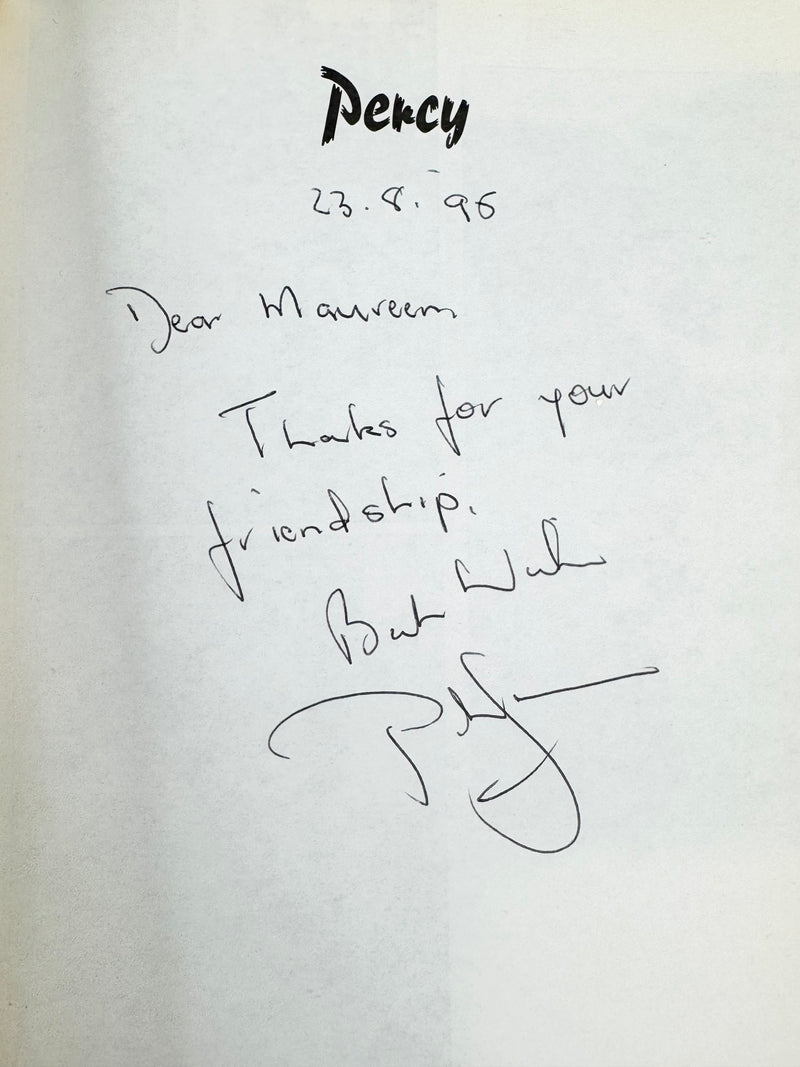 Percy
23.8.96
Dear Maureen
Thanks for your
friendship.
Best Wishes
Percy